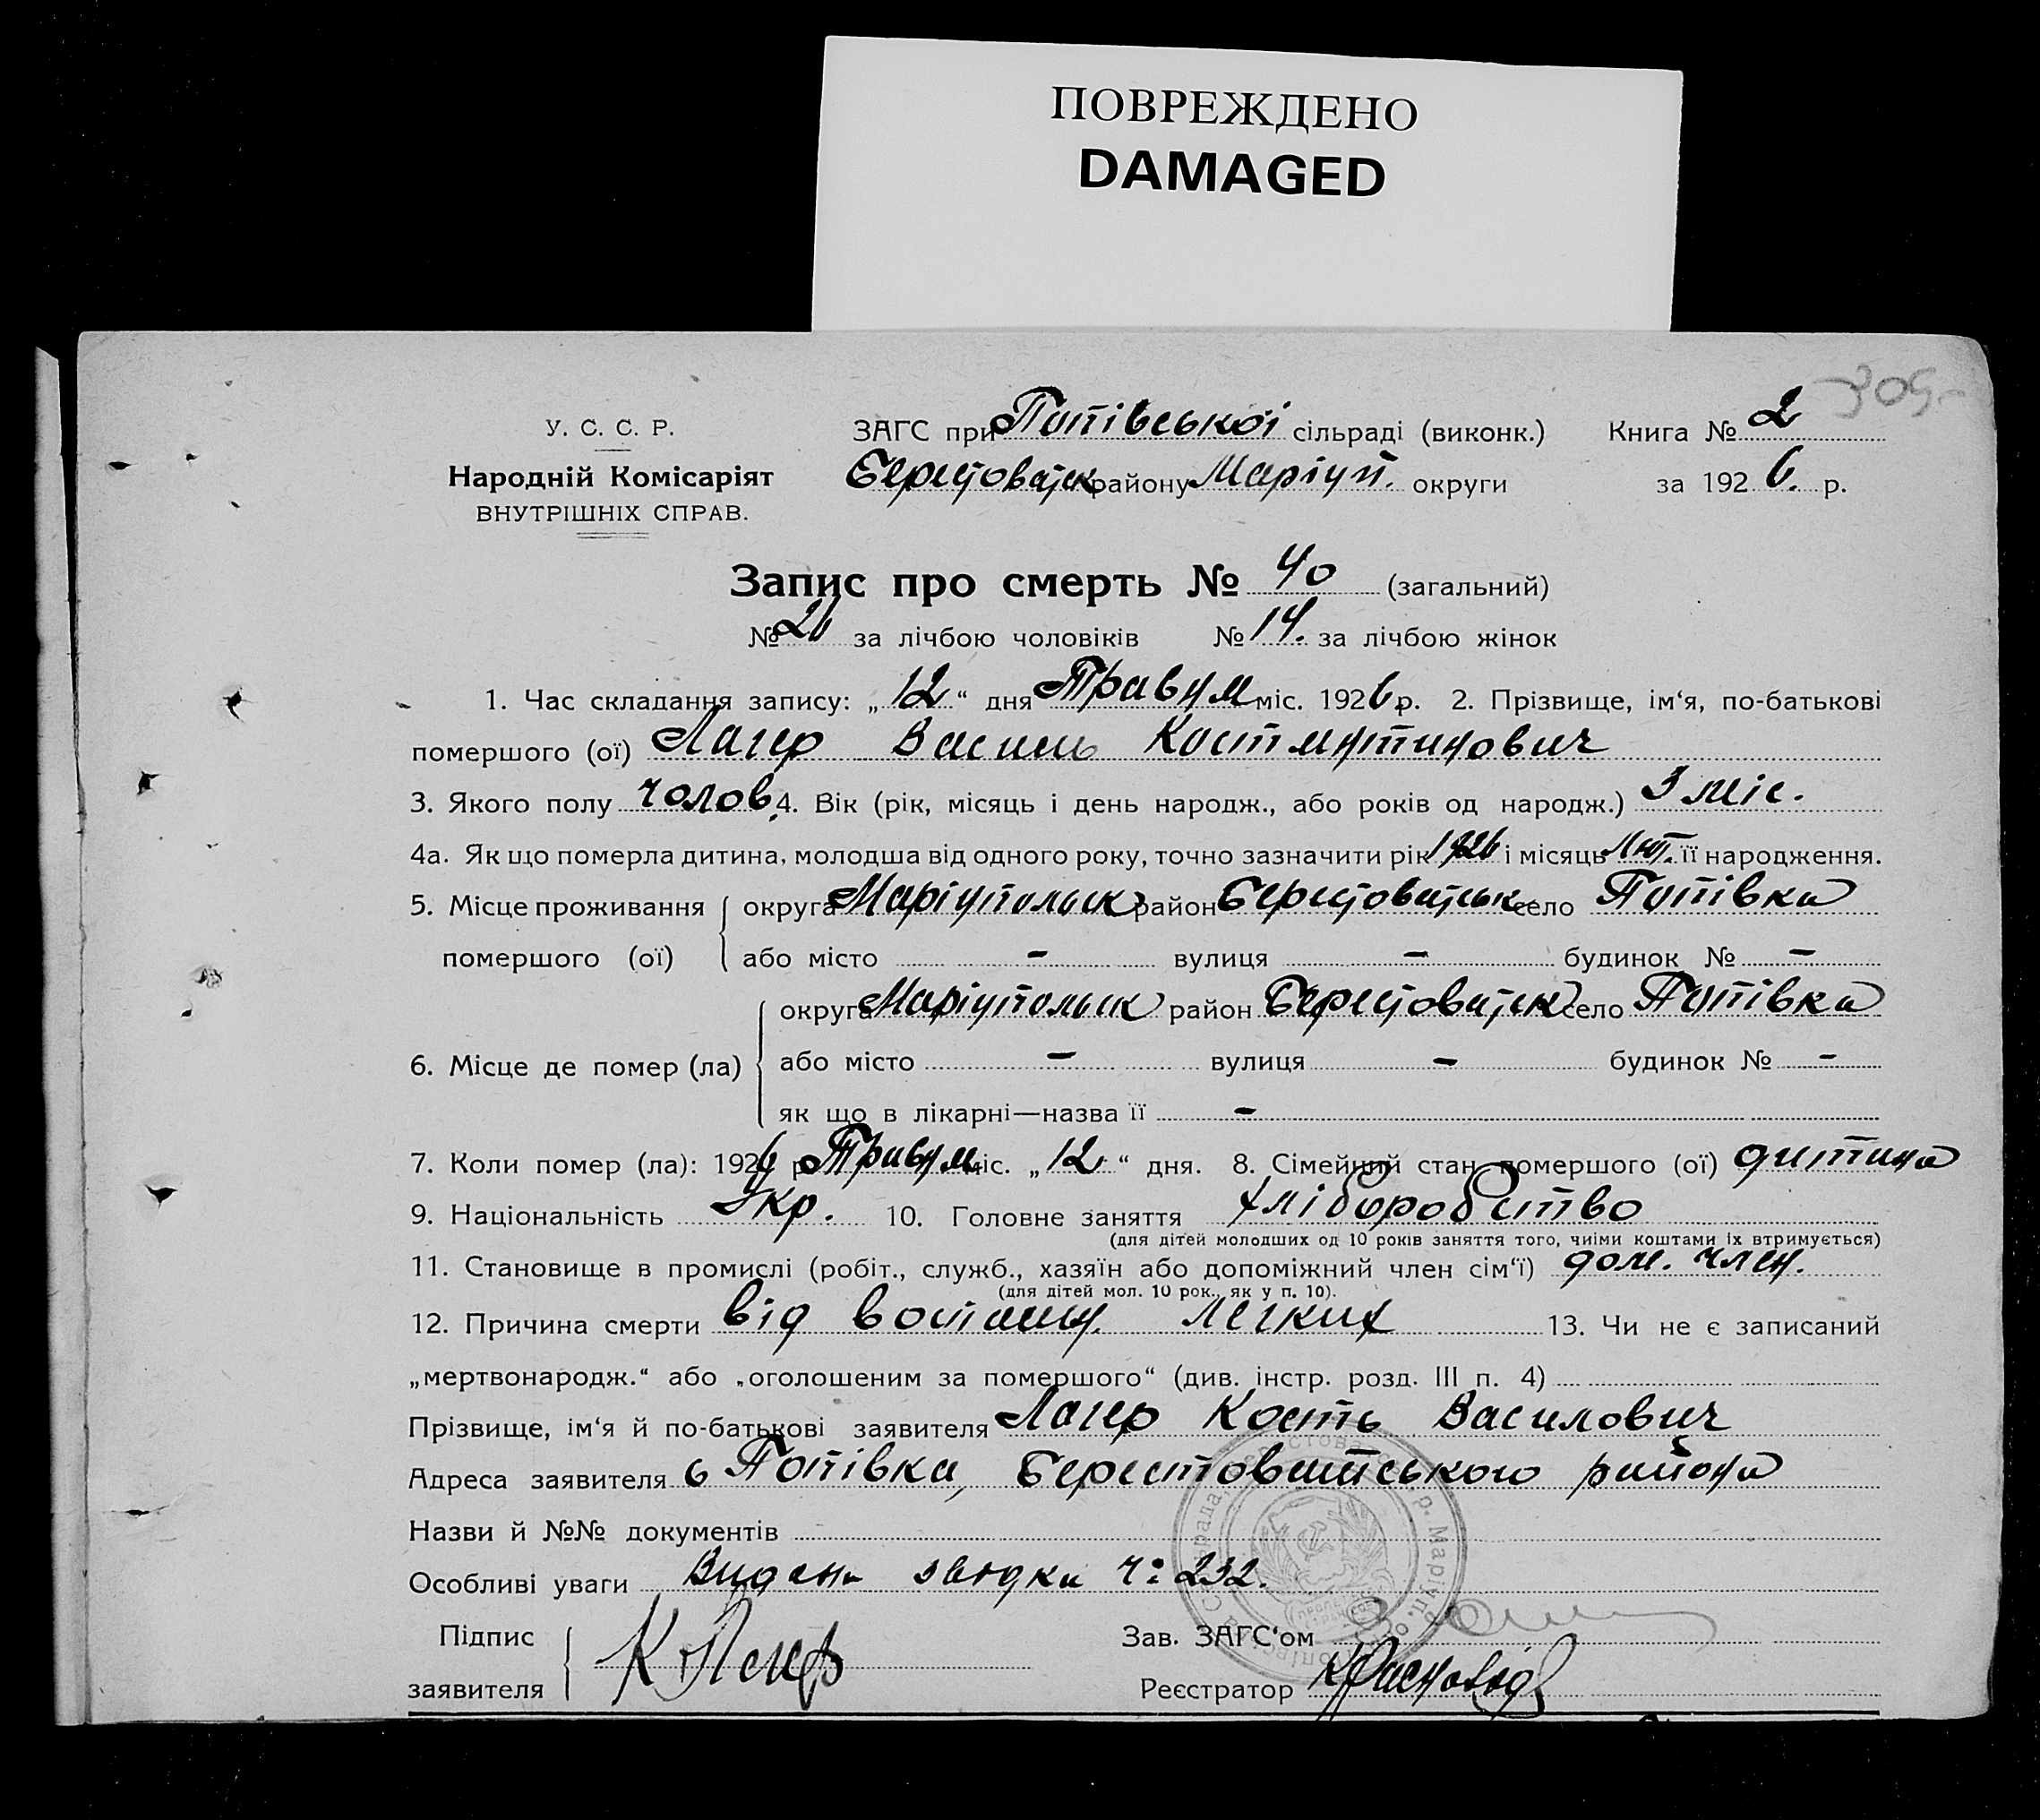 ПОВРЕЖДЕНО
DAMAGED
309
У. С. С. Р.
Народній Комісаріят
ВНУТРІШНІХ СПРАВ.
ЗАГС при Попівської сільраді (виконк.) Книга № 2
Берестоватск району Маріуп. округи за 1926. р.
Запис про смерть № 40 (загальний)
№ 26 за лічбою чоловіків № 14. за лічбою жінок
1. Час складання запису: „12“ дня Травня міс. 1926 р. 2. Прізвище, ім‘я, по-батькові
помершого (ої) Лагер Василь Костянтинович
3. Якого полу чолов. 4. Вік (рік, місяць і день народж., або років од народж.) 3 міс.
4а. Як що померла дитина, молодша від одного року, точно зазначити рік 1926 і місяць Лют. її народження.
5. Місце проживання помершого (ої) округа Маріупольск район Берестоватськ село Попівка
або місто – вулиця – будинок № –
6. Місце де помер (ла) округа Маріупольск район Берестоватск село Попівка
або місто – вулиця – будинок № –
як що в лікарні—назва її –
7. Коли помер (ла): 1926 р. Травня міс. „12“ дня. 8. Сімейний стан помершого (ої) дитина
9. Національність Укр. 10. Головне заняття хліборобство
(для дітей молодших од 10 років заняття того, чиїми коштами їх втримується)
11. Становище в промислі (робіт., служб., хазяїн або допоміжний член сім‘ї) доп. член.
(для дітей мол. 10 рок., як у п. 10).
12. Причина смерти від воспален. легких 13. Чи не є записаний
„мертвонародж.“ або „оголошеним за помершого“ (див. інстр. розд. III п. 4)
Прізвище, ім‘я й по-батькові заявителя Лагер Кость Василович
Адреса заявителя с Попівка, Берестоватського района
Назви й №№ документів
Особливі уваги Видана звідка ч: 232.
Підпис заявителя К Лагер
Зав. ЗАГС‘ом
Реєстратор